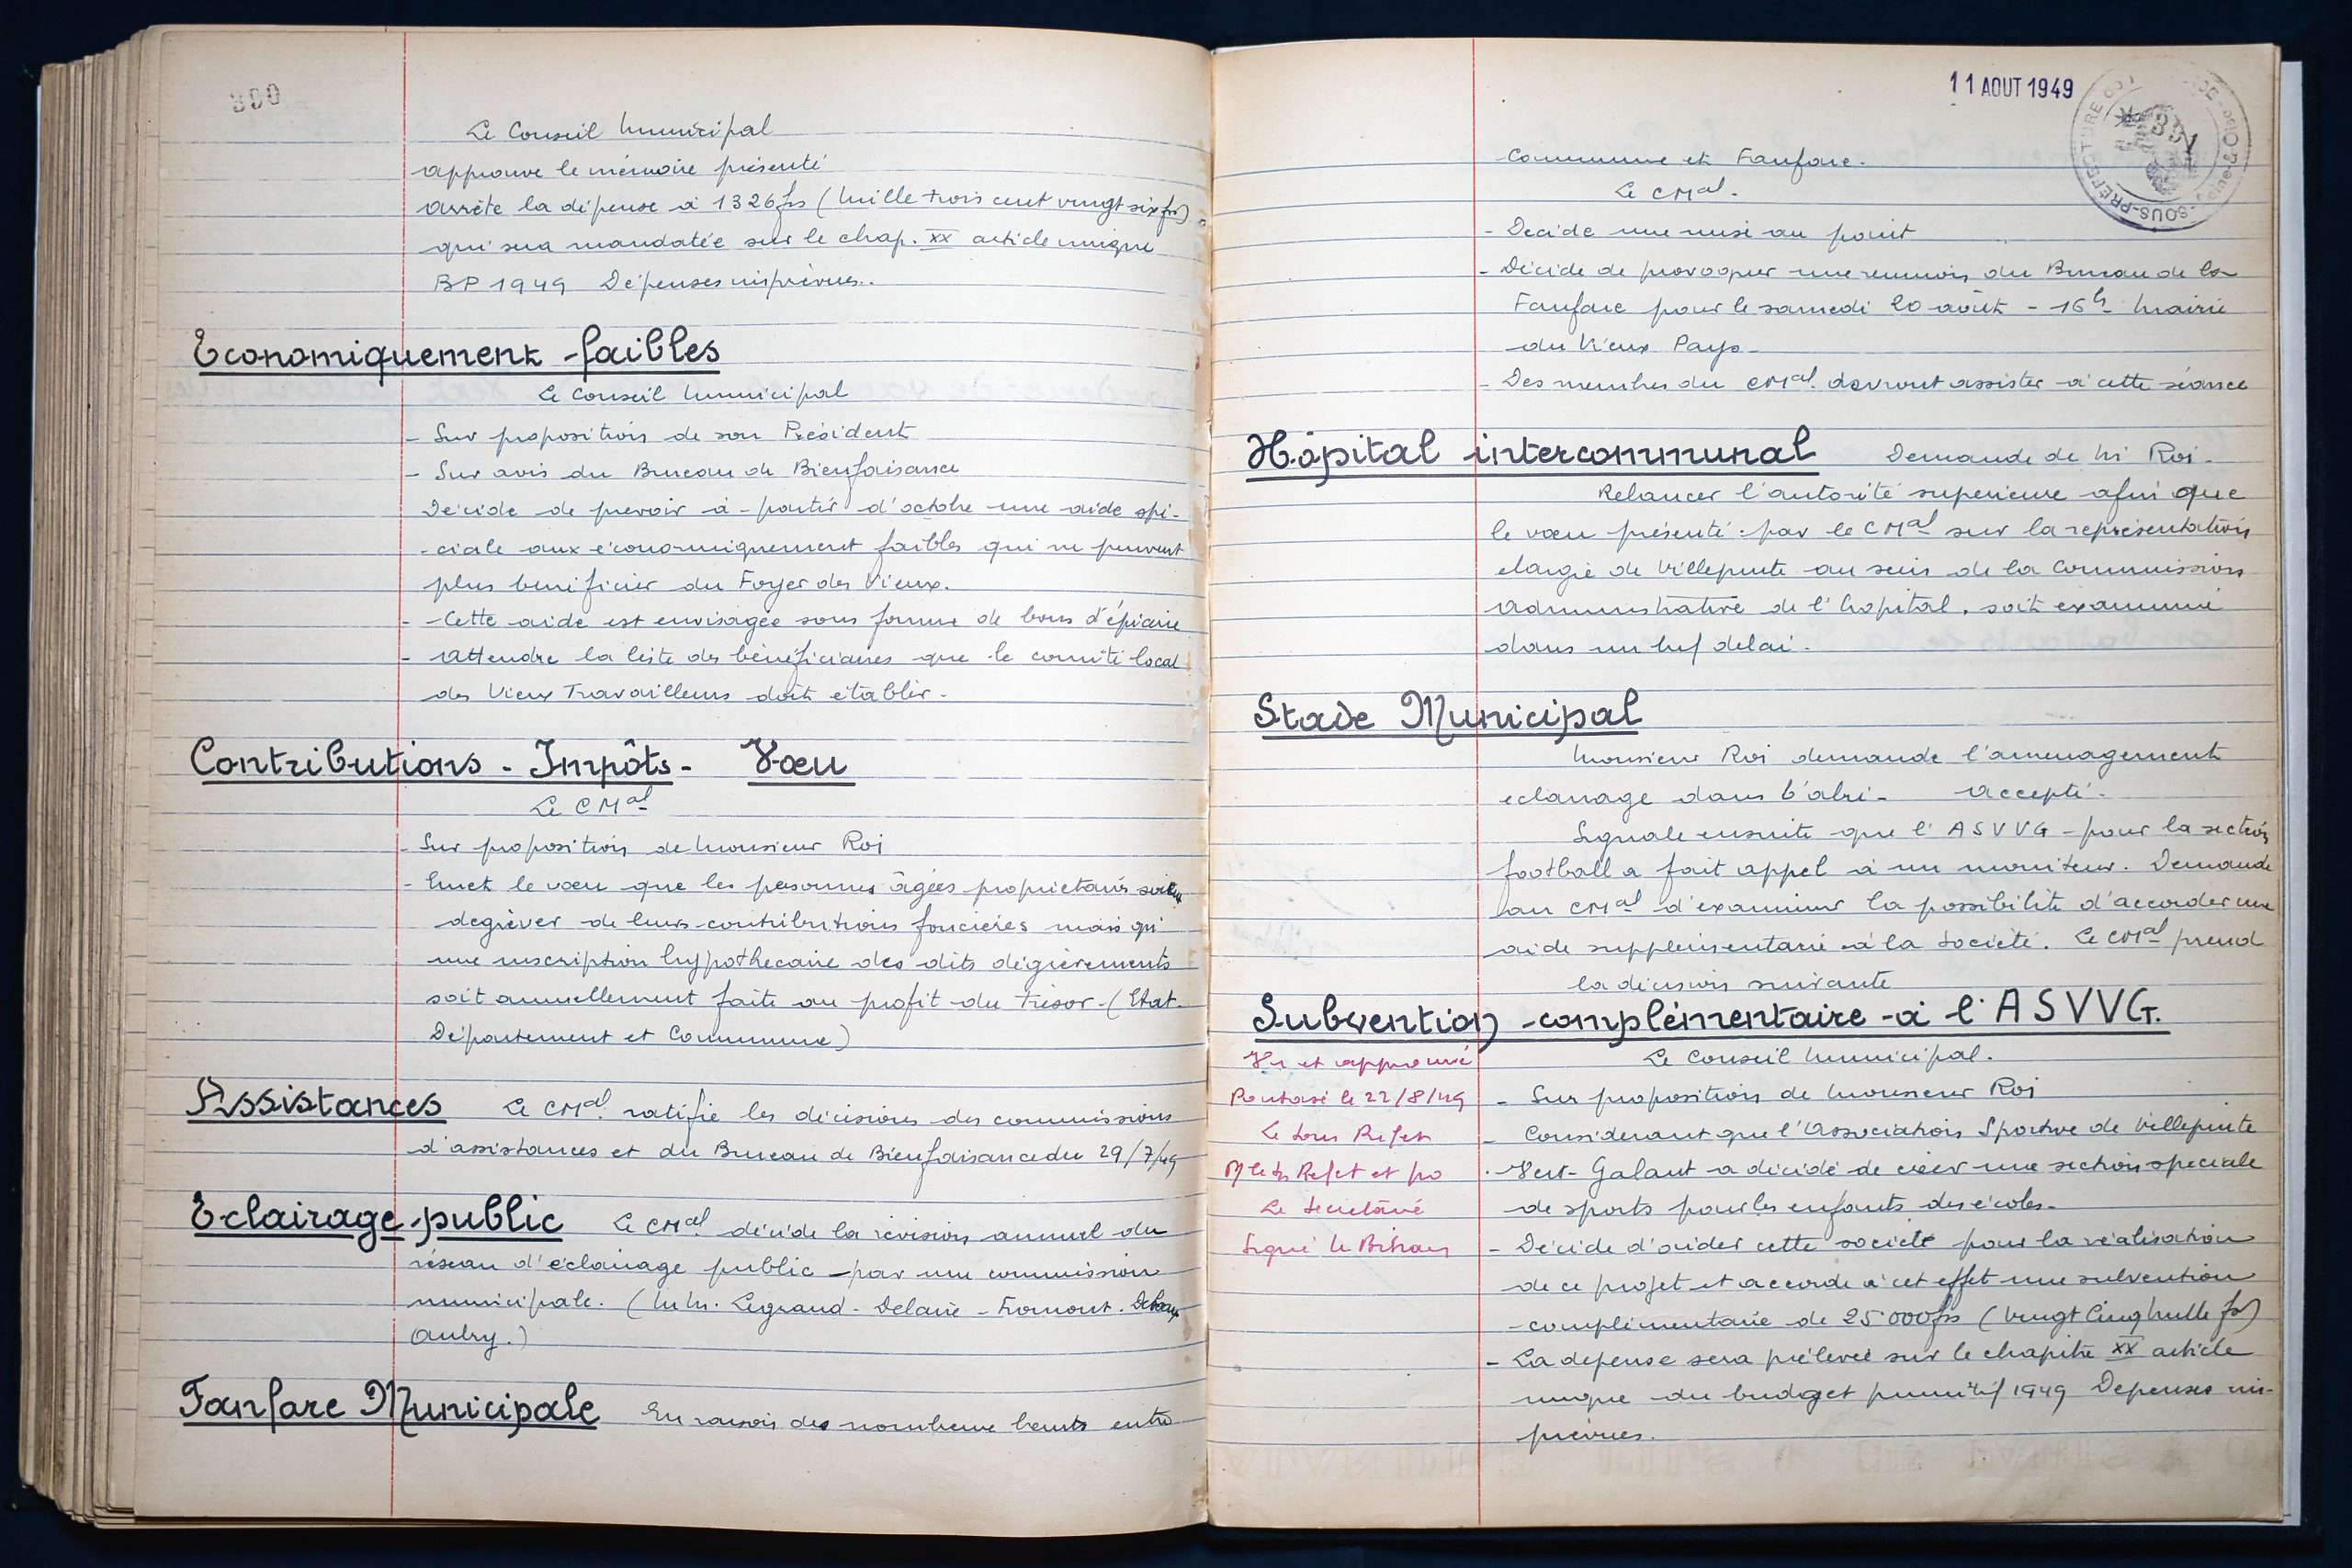 300
Le Conseil Municipal
approuve le mémoire présenté
arrête la dépense à 1326 frs (Mille trois cent vingt six frs)
qui sera mandatée sur le chap. XX article unique
BP 1949 Dépenses imprévues..
Economiquement faibles
Le Conseil Municipal
- Sur proposition de son Président
- Sur avis du Bureau de Bienfaisance
Décide de prevoir à partir d'octobre une aide spé-
-ciale aux économiquement faibles qui ne peuvent
plus beneficier du Foyer des Vieux.
- Cette aide est envisagée sous forme de bons d'épicerie
- Attendre la liste des bénéficiaires que le comité local
des Vieux Travailleurs doit établir.
Contributions - Impôts - Vœu
Le CMal
- Sur proposition de Monsieur Roi
- Emet le vœu que les personnes âgées proprietaires soient
degrèver de leurs contributions foncières mais qu'
une inscription hypothecaire des dits dégrèvements
soit annuellement faite au profit du trésor - (Etat.
Département et Commune)
Assistances Le CMal ratifie les décisions des commissions
d'assistances et du Bureau de Bienfaisance du 29/7/49
Eclairage public Le CMal décide la révision annuel du
réseau d'éclairage public - par une commission
municipale. (MM. Legrand - Delaire - Fromont.
Aubry.)
Fanfare Municipale En raison des nombreux heurts entre
11 AOUT 1949
SOUS-PREFECTURE
Seine-&-Oise
Commune et Fanfare.
Le CMal.
- Decide une mise au point
- Décide de provoquer une reunion du Bureau de la
Fanfare pour le samedi 20 août - 16h Mairie
du Vieux Pays -
- Des membres du CMal. devront assister à cette séance
Hôpital intercommunal Demande de M. Roi -
Relancer l'autorité superieure afin que
le vœu présenté par le CMal sur la représentation
elargie de Villepinte au sein de la Commission
Administrative de l'hopital, soit examiné
dans un bref delai.
Stade Municipal
Monsieur Roi demande l'amenagement
eclairage dans l'abri - Accepté.
Signale ensuite que l'ASVVG - pour la section
football a fait appel à un moniteur. Demande
au CMal d'examiner la possibilité d'accorder une
aide supplementaire à la Société. Le CMal prend
la décision suivante
Subvention complémentaire à l'ASVVG.
Le Conseil Municipal.
- Sur proposition de Monsieur Roi
- Considerant que l'Association Sportive de Villepinte
Vert-Galant a décidé de créer une section speciale
de sports pour les enfants des écoles.
- Décide d'aider cette société pour la réalisation
de ce projet et accorde à cet effet une subvention
complémentaire de 25000 frs (Vingt Cinq Mille frs)
- La depense sera prélevée sur le chapitre XX article
unique du budget primitif 1949 Dépenses im-
prévues.
Vu et approuvé
Pontoise le 22/8/49
Le Sous Prefet
Le Secrétaire
Signé Le Bihan